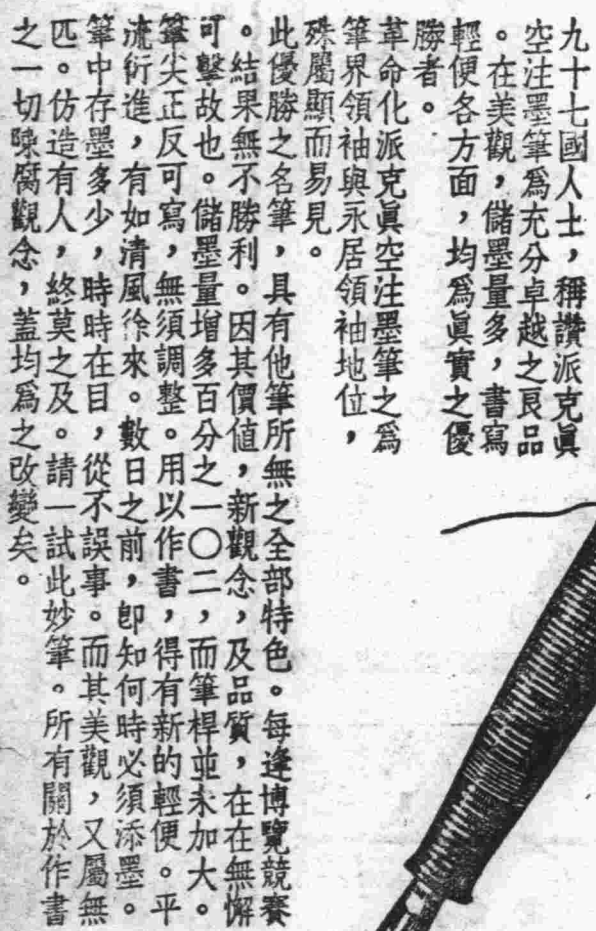 九十七國人士，稱讚派克眞
空注墨筆爲充分卓越之良品
。在美觀，儲墨量多，書寫
輕便各方面，均爲眞實之優
勝者。
革命化派克眞空注墨筆之爲
筆界領袖與永居領袖地位，
殊屬顯而易見。
此優勝之名筆，具有他筆所無之全部特色。每逢博覽競賽
。結果無不勝利。因其價値，新觀念，及品質，在在無懈
可擊故也。儲墨量增多百分之一〇二，而筆桿並未加大。
筆尖正反可寫，無須調整。用以作書，得有新的輕便。平
流衍進，有如清風徐來。數日之前，卽知何時必須添墨。
筆中存墨多少，時時在目，從不誤事。而其美觀，又屬無
匹。仿造有人，終莫之及。請一試此妙筆。所有關於作書
之一切陳腐觀念，蓋均爲之改變矣。